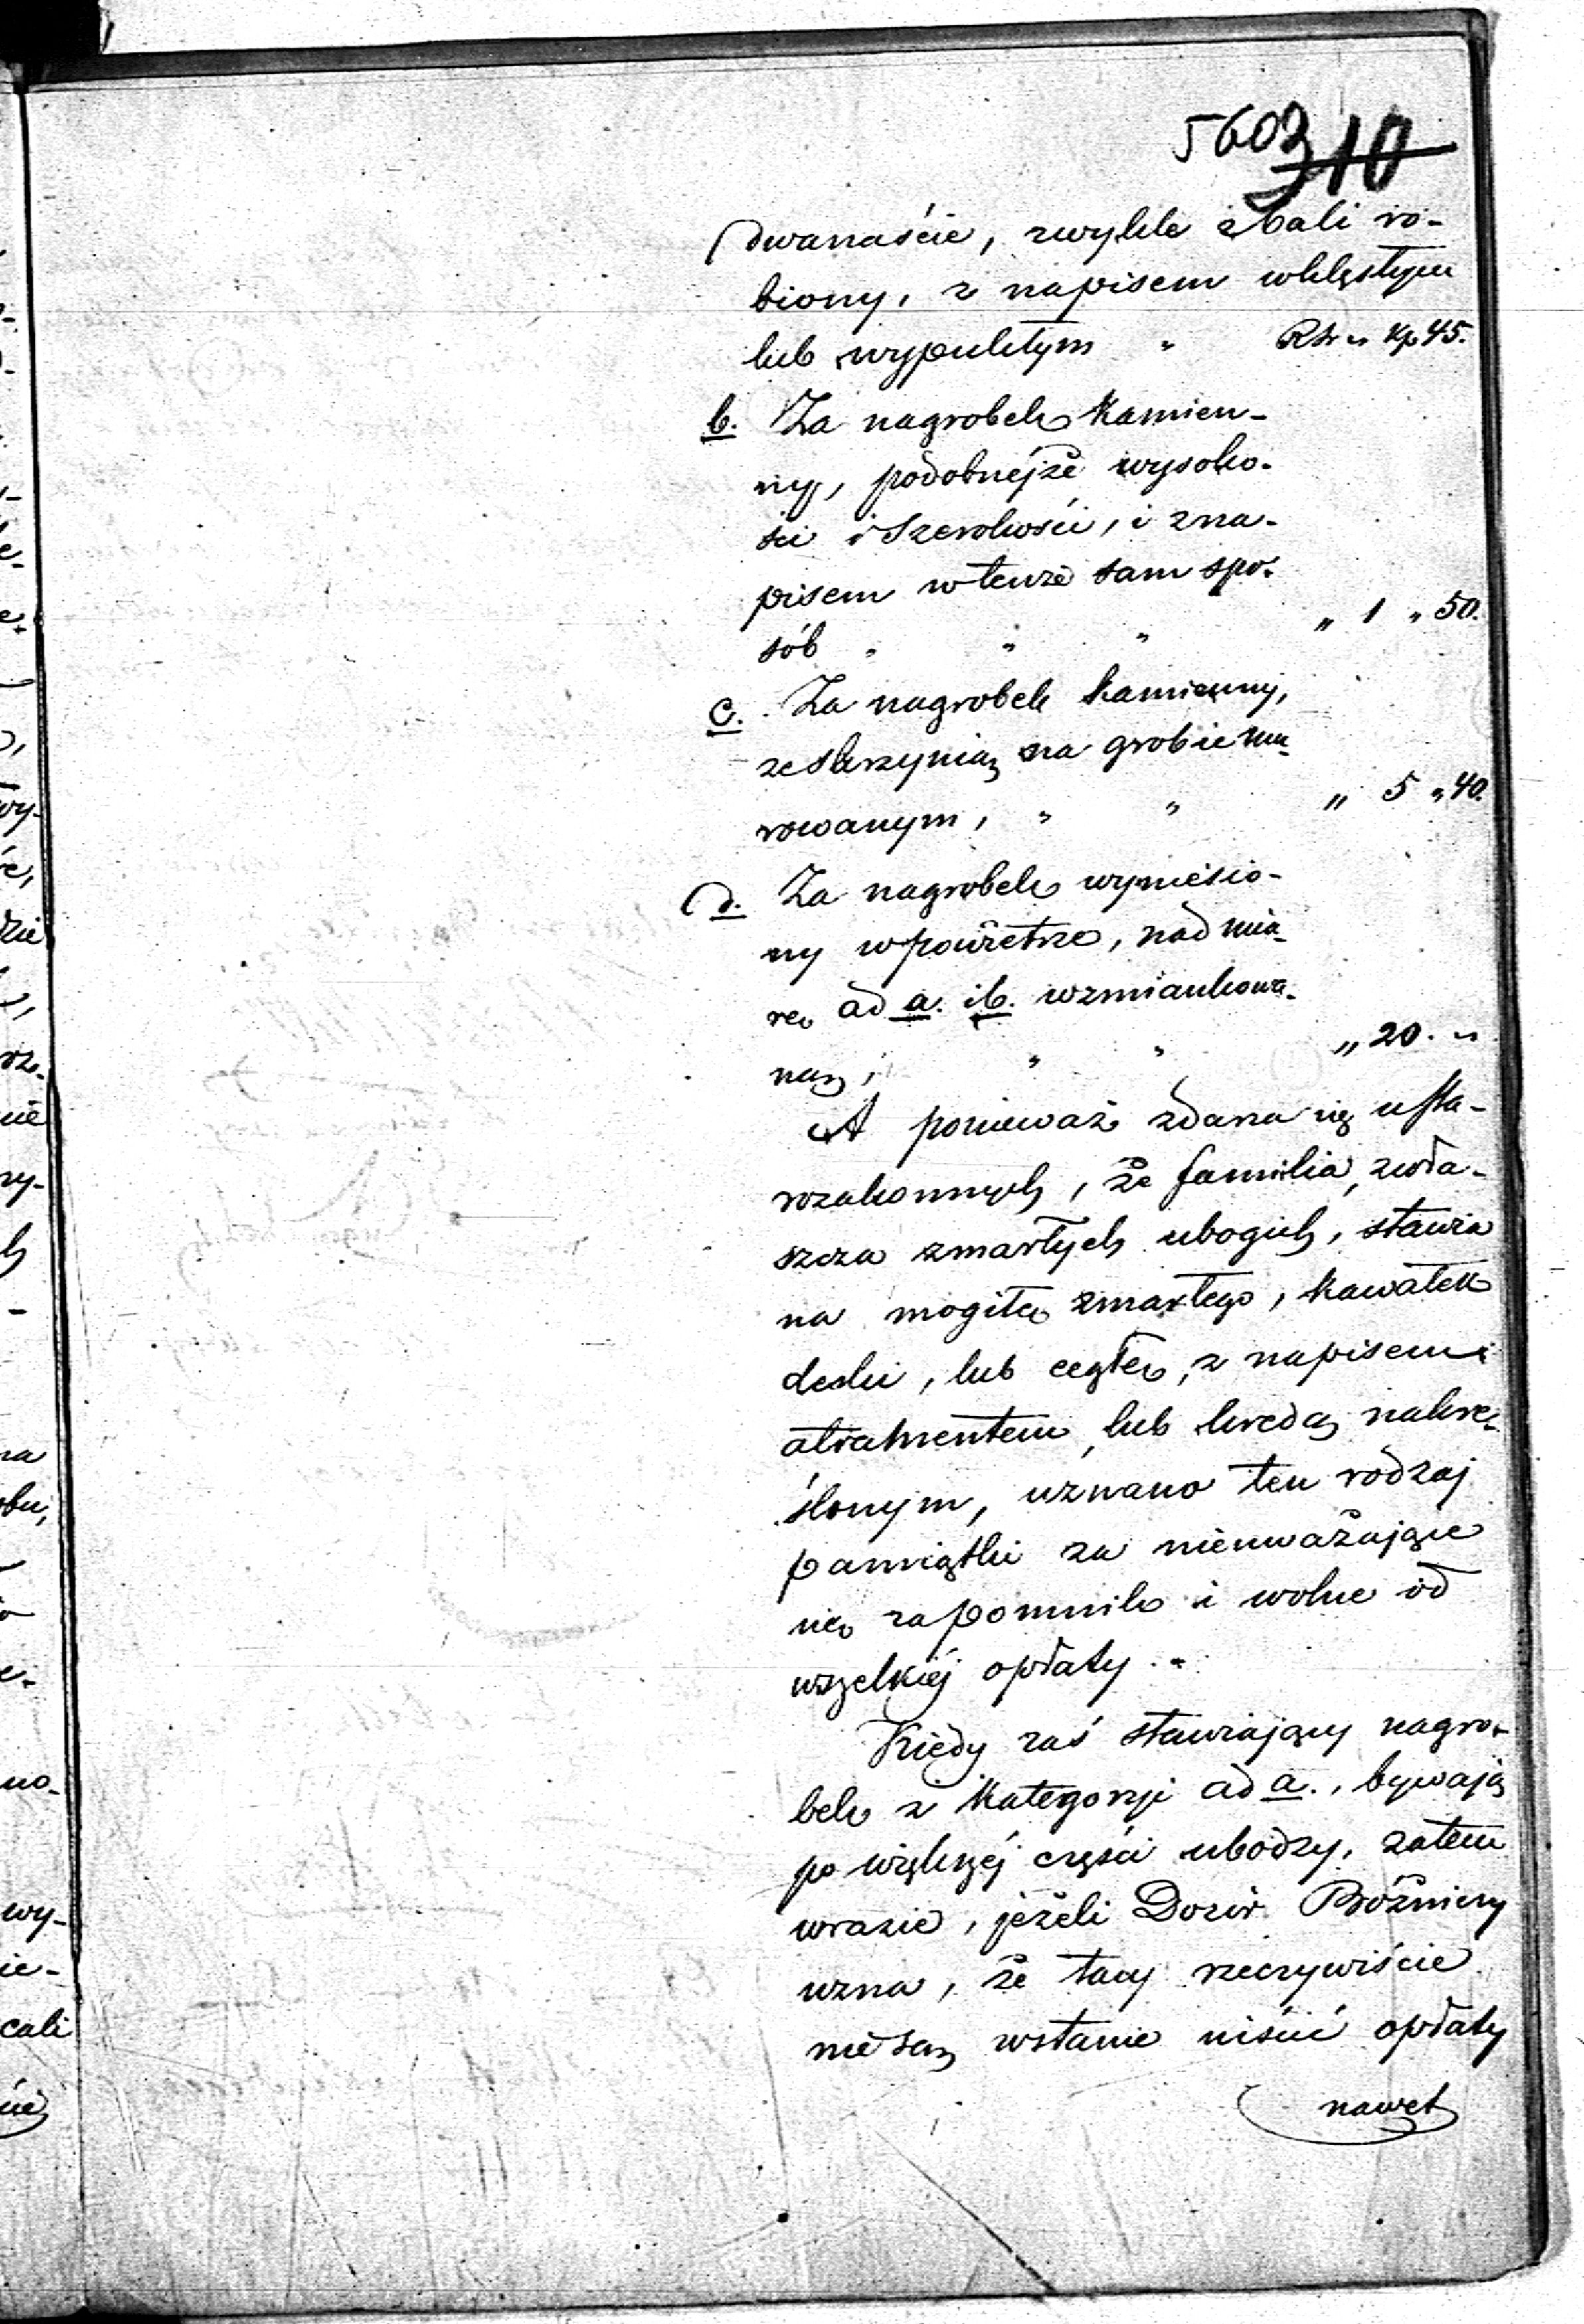 5603 310
dwanaście, zwykle z bali ro-
biony, z napisem wklęstym
lub wypukłym " Rsr " Kp 45.
b. Za nagrobek kamien-
ny, podobnejże wysoko-
ści i szerokości, i z na-
pisem w tenże sam spo-
sób " " " " 1 " 50.
c. Za nagrobek kamienny,
ze skrzynią na grobie mu-
rowanym, " " " 5 " 40.
d. Za nagrobek wyniesio-
ny w powietrze, nad mia-
rę ad a. i b. wzmiankowa-
ną, " " " 20. "
A ponieważ zdarza się u Sta-
rozakonnych, że familia, zwła-
szcza zmarłych ubogich, stawia
na mogiłę zmarłego, kawałek
deski, lub cegłę, z napisem
atramentem lub kredą nakre-
ślonym, uznano ten rodzaj
pamiątki za nieuważające
się za pomnik i wolne od
wszelkiéj opłaty.
Kiedy zaś stawiający nagro-
bek z kategoryi ad a., bywają
po większéj części ubodzy, zatem
w razie, jeżeli Dozór Bóżniczy
uzna, że tacy rzeczywiście
nie są w stanie uiścić opłaty
nawet
wy-
dzie
nie
ry-
na
bu,
no-
wy-
ie-
cali